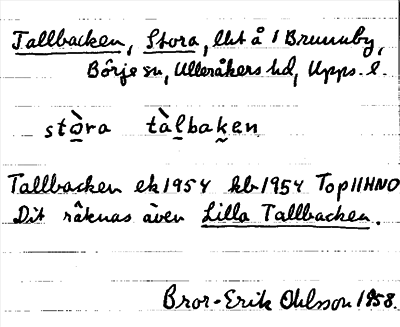 Tallbacken, Stora, lht å 1 Brunnby,
Börje sn, Ulleråkers hd, Upps. l.
stòra tàlbaken
Tallbacken ek 1954 kb 1954 Top 11HNO
Dit räknas även Lilla Tallbacken.
Bror-Erik Ohlsson 1958.